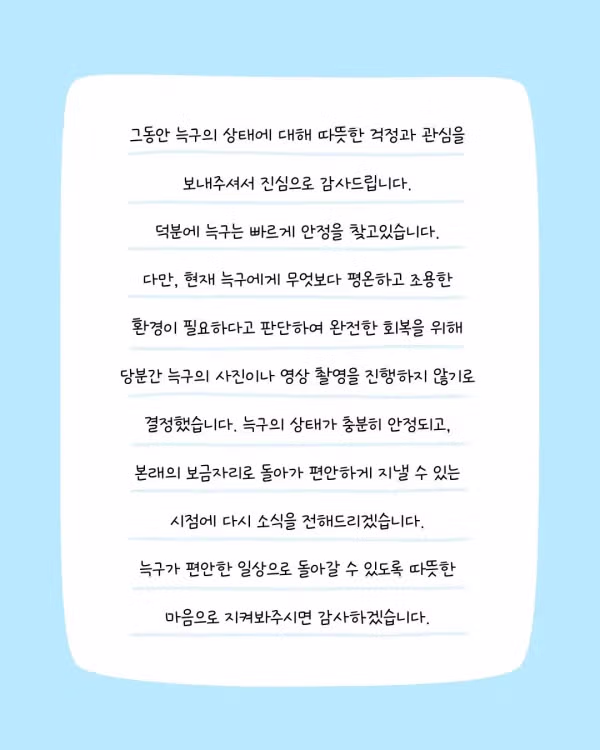 그동안 늑구의 상태에 대해 따뜻한 걱정과 관심을
보내주셔서 진심으로 감사드립니다.
덕분에 늑구는 빠르게 안정을 찾고있습니다.
다만, 현재 늑구에게 무엇보다 평온하고 조용한
환경이 필요하다고 판단하여 완전한 회복을 위해
당분간 늑구의 사진이나 영상 촬영을 진행하지 않기로
결정했습니다. 늑구의 상태가 충분히 안정되고,
본래의 보금자리로 돌아가 편안하게 지낼 수 있는
시점에 다시 소식을 전해드리겠습니다.
늑구가 편안한 일상으로 돌아갈 수 있도록 따뜻한
마음으로 지켜봐주시면 감사하겠습니다.